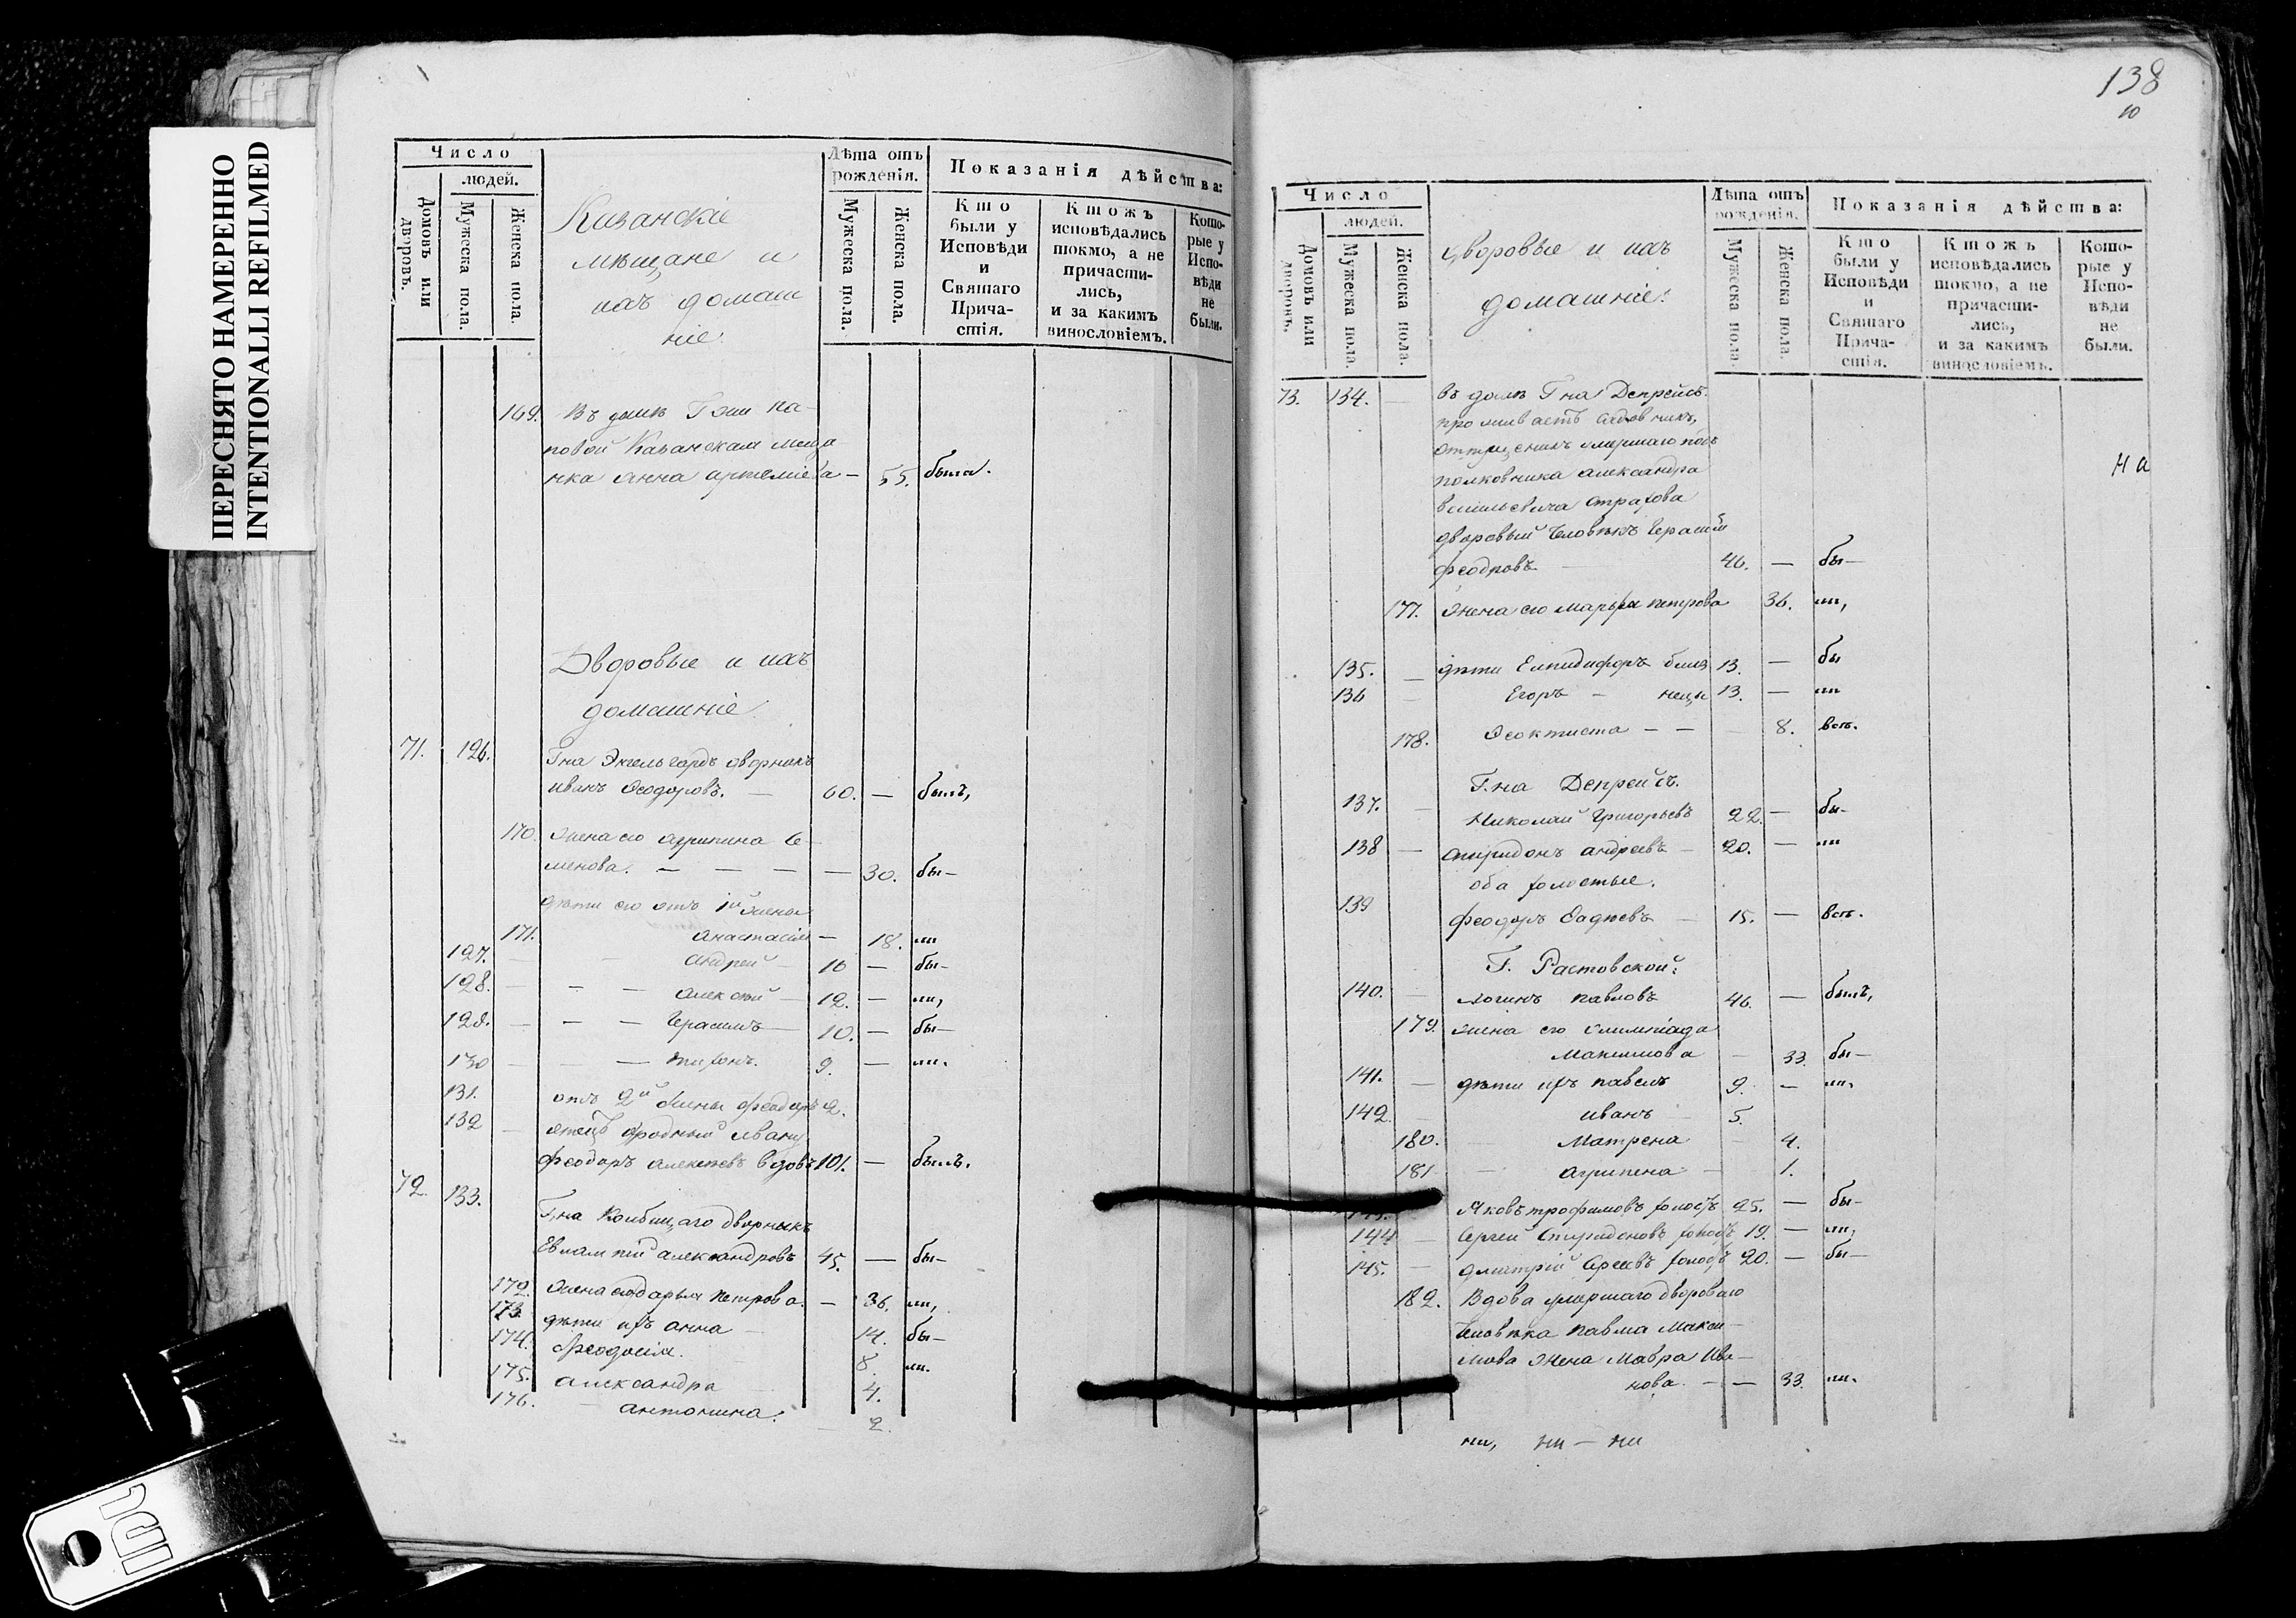 ПЕРЕСНЯТО НАМЕРЕННО
INTENTIONALLI REFILMED
Число
людей.
Домовъ или дворовъ.
Мужеска пола.
Женска пола.
Казанскіе
мѣщане и
ихъ домаш
ніе.
Лѣта отъ рожденія.
Мужеска пола.
Женска пола.
Показанія дѣйства:
Кто были у Исповѣди и Святаго Причастія.
Ктожъ исповѣдались токмо, а не причастились, и за какимъ винословіемъ.
Которые у Исповѣди не были.
169. Въ домѣ Гжи Па-
повой Казанская меща
нка Анна Артеміева — 55. была.
Дворовые и ихъ
домашніе.
71. 126. Гна Энгельгардъ дворникъ
Иванъ Ѳеодоровъ. — 60. — былъ,
170. Жена его Агрипина Се
менова. — — — — 30. бы—
дѣти его отъ 1й жены
171. Анастасія — 18. ли
127. — Андрей — 16 — бы—
128. — — — Алексѣй — 12. — ли,
129. — — — Герасимъ — 10. — бы—
130 — — — Тихонъ. 9. — ли.
131. отъ 2й жены Феодоръ 2.
132 — отецъ родный Ивану
Феодоръ Алексѣевъ вдовъ 101. — былъ.
72. 133. Г,на дворникъ
Евлампій Александровъ 45. — бы—
172. Жена его Дарья Петрова. — 36. ли,
173. дѣти ихъ Анна — 14. бы—
174. Феодосія. 8. ли.
175. Александра — 4.
176. — Антонина. — 2.
138
10
Число
людей.
Домовъ или дворовъ.
Мужеска пола.
Женска пола.
Дворовые и ихъ
домашніе:
Лѣта отъ рожденія.
Мужеска пола.
Женска пола.
Показанія дѣйства:
Кто были у Исповѣди и Святаго Причастія.
Ктожъ исповѣдались токмо, а не причастились, и за какимъ винословіемъ.
Которые у Исповѣди не были.
73. 134. — Въ домѣ Гна Депрейсъ
проживаетъ садовникъ,
умершаго под
полковника Александра
Васильевича Страхова
дворовый человѣкъ Герасим
Феодровъ — 46. — бы—
На
177. Жена его Марфа Петрова 36. ли,
135. — дѣти Елпидифоръ близ 13. — бы
136 — Егоръ — нецы 13. — ли
178. Ѳеоктиста — — — 8. всѣ.
Г.на Депрейсъ.
137. — Николай Григорьевъ 22. — бы—
138 — Спиридонъ Андреевъ — 20. — ли
оба холостые.
139 Феодоръ Фадѣевъ — 15. — всѣ.
Г. Растовской:
140. — Логинъ Павловъ 46. — былъ,
179. жена его Олимпіада
Максимова — 33. бы—
141. — дѣти ихъ Павелъ 9. — ли,
142. — Иванъ — 5.
180. — Матрена — 4.
181 — Агрипена — 1.
143. Яковъ Трофимовъ холостъ 25. — бы—
144 — Сергей Спиридоновъ холостъ 19. — ли,
145. — Дмитрій Сергеевъ холостъ 20. — бы—
182. Вдова умершаго двороваго
человѣка Павла Макси—
мова жена Мавра Ива—
нова. — — 33. ли.
ли, ли — ли